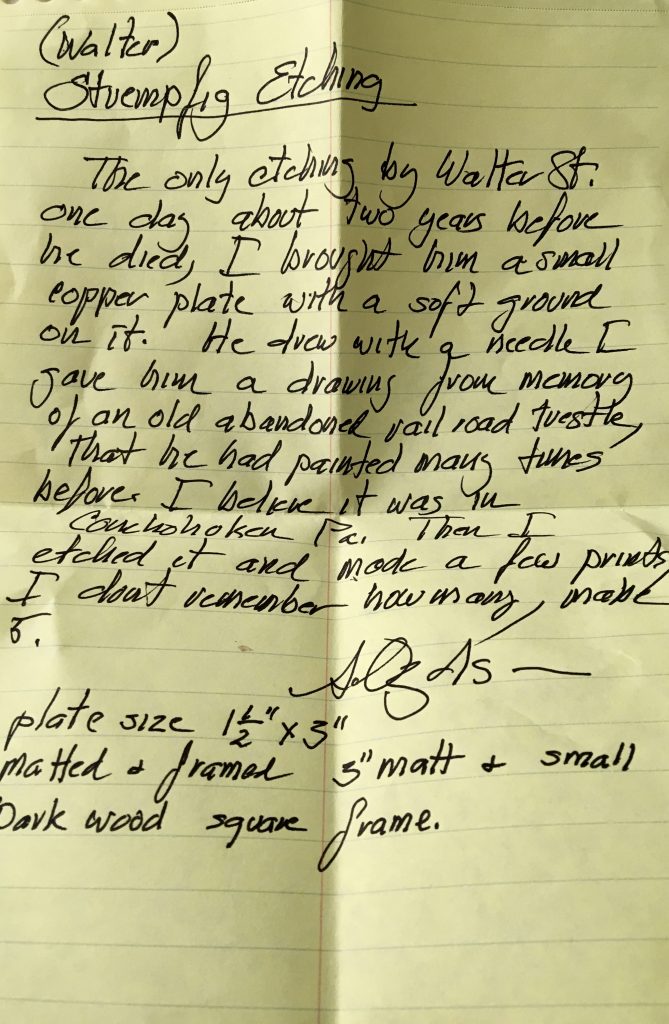 (Walter)
Stuempfig Etching
The only etching by Walter St.
one day about two years before
he died, I brought him a small
copper plate with a soft ground
on it. He drew with a needle I
gave him a drawing from memory
of an old abandoned rail road trestle,
that he had painted many times
before. I believe it was in
Conchohoken Pa. Then I
etched it and made a few prints,
I don't remember how many, maybe
5.
plate size 1 1/2" x 3"
matted & framed 3" matt & small
Dark wood square frame.